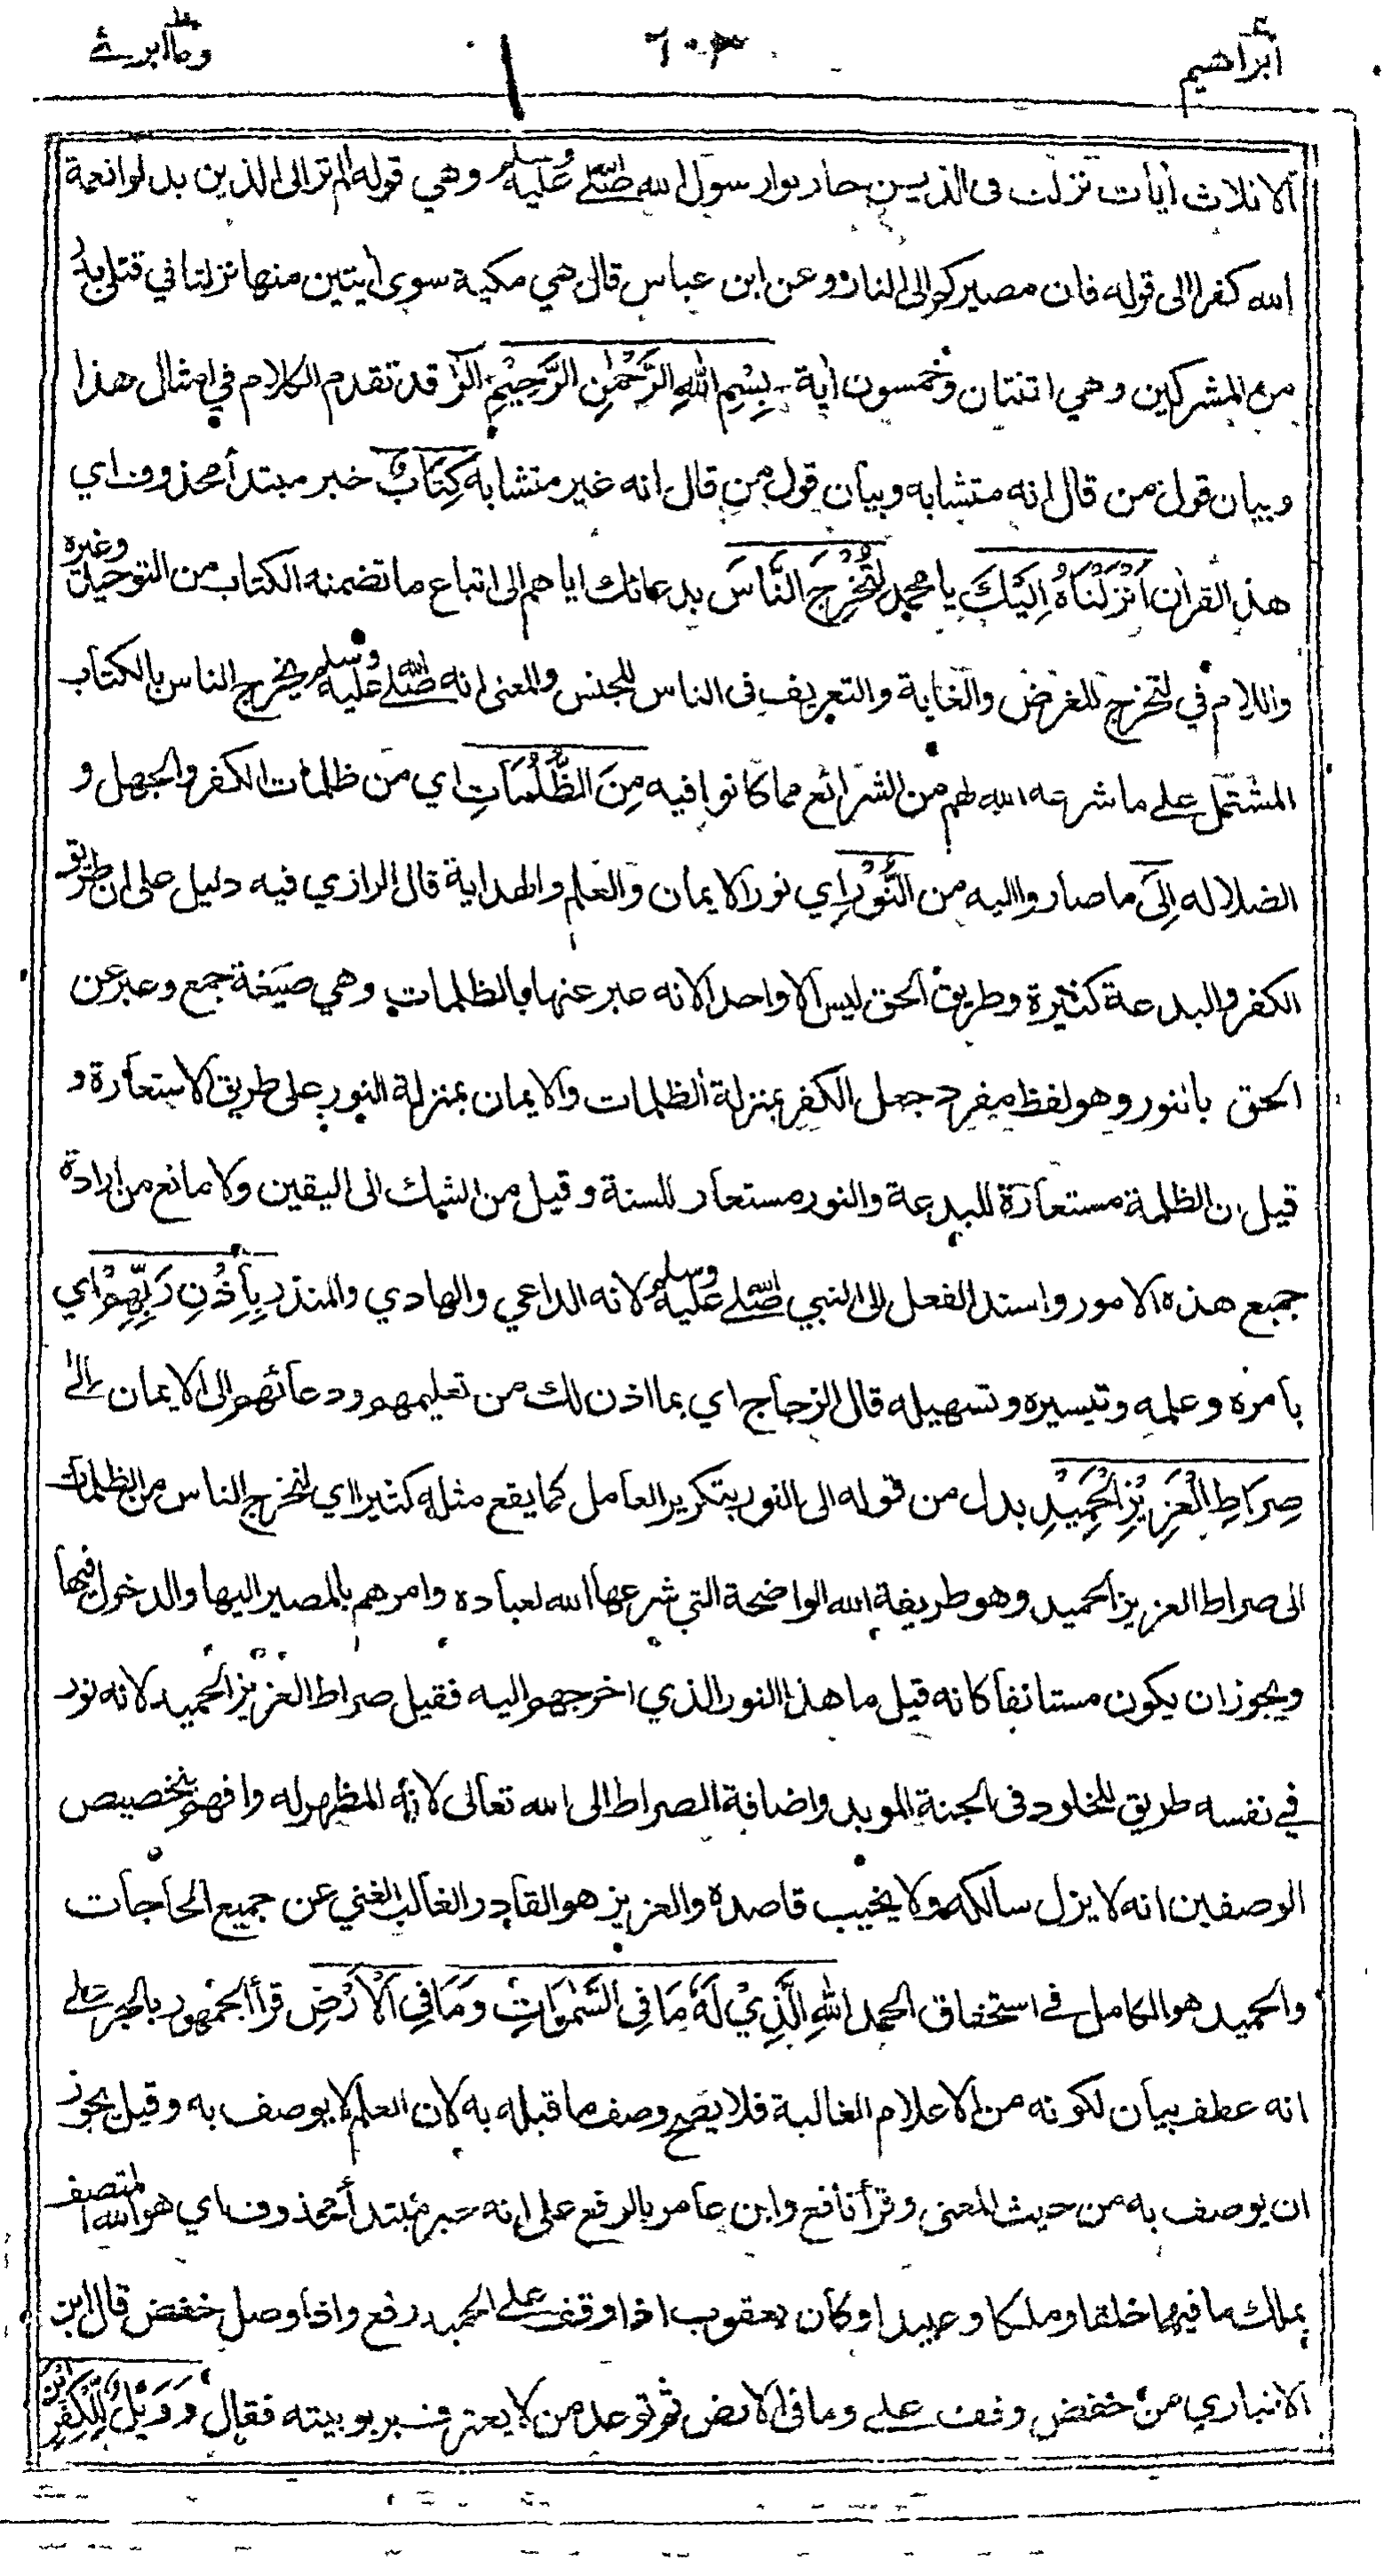 ابراهيم
٦٠٣
وما ابرئ
الا ثلاث أيات نزلت فى الذين حاربوا رسول الله صلى الله عليه وسلم وهي قوله ألم تر الى الذين بدلوا نعمة
الله كفرا الى قوله فان مصيركم الى النار وعن ابن عباس قال هي مكية سوى أيتين منها نزلتا في قتلى بدر
من المشركين وهي اثنتان وخمسون أية بِسْمِ اللهِ الرَّحْمٰنِ الرَّحِيْمِ الٓرٰ قد تقدم الكلام في امثال هذا
وبيان قول من قال انه متشابه وبيان قول من قال انه غير متشابه كِتَابٌ خبر مبتدأ محذوف اي
هذا القران اَنْزَلْنَاهُ اِلَيْكَ يا محمد لِتُخْرِجَ النَّاسَ بدعائك اياهم الى اتباع ما تضمنه الكتاب من التوحيد وغيره
واللام في لتخرج للغرض والغاية والتعريف فى الناس للجنس والمعنى انه صلى الله عليه وسلم يخرج الناس بالكتاب
المشتمل على ما شرعه الله لهم من الشرائع مما كانوا فيه مِنَ الظُّلُمَاتِ اي من ظلمات الكفر والجهل و
الضلاله اِلَى ما صاروا اليه من النُّوْرِ اي نور الايمان والعلم والهداية قال الرازي فيه دليل على ان طريق
الكفر والبدعة كثيرة وطريق الحق ليس الا واحدا لانه عبر عنها بالظلمات وهي صيغة جمع وعبر عن
الحق بالنور وهو لفظ مفرد جعل الكفر بمنزلة الظلمات والايمان بمنزلة النور على طريق الاستعارة و
قيل ان الظلمة مستعارة للبدعة والنور مستعار للسنة وقيل من الشك الى اليقين ولا مانع من ارادة
جميع هذه الامور واسند الفعل الى النبي صلى الله عليه وسلم لانه الداعي والهادي والمنذر بِاِذْنِ رَبِّهِمْ اي
بأمره وعلمه وتيسيره وتسهيله قال الزجاج اي بما اذن لك من تعليمهم ودعائهم الى الايمان اِلىٰ
صِرَاطِ الْعَزِيْزِ الْحَمِيْدِ بدل من قوله الى النور بتكرير العامل كما يقع مثله كثيرا اي لتخرج الناس من الظلمات
الى صراط العزيز الحميد وهو طريقة الله الواضحة التي شرعها الله لعباده وامرهم بالمصير اليها والدخول فيها
ويجوز ان يكون مستانفا كانه قيل ما هذا النور الذي اخرجهم اليه فقيل صراط العزيز الحميد لانه نور
في نفسه طريق للخلود فى الجنة الموبد واضافة الصراط الى الله تعالى لانه المظهر له وافهم تخصيص
الوصفين انه لا يزل سالكه ولا يخيب قاصده والعزيز هو القادر الغالب الغني عن جميع الحاجات
والحميد هو الكامل في استحقاق الحمد اللهِ الَّذِيْ لَهٗ مَا فِي السَّمٰوَاتِ وَمَا فِي الْاَرْضِ قرأ الجمهور بالجر على
انه عطف بيان لكونه من الاعلام الغالبة فلا يصح وصف ما قبله به لان العلم لا يوصف به وقيل يجوز
ان يوصف به من حيث المعنى وقرأ نافع وابن عامر بالرفع على انه خبر مبتدأ محذوف اي هو الله المتصف
بملك ما فيها خلقا وملكا وعبيدا وكان يعقوب اذا وقف على الحميد رفع واذا وصل خفض قال ابن
الانباري من خفض وقف على وما فى الارض ثم توعد من لا يعترف بربوبيته فقال وَوَيْلٌ لِّلْكٰفِرِيْنَ